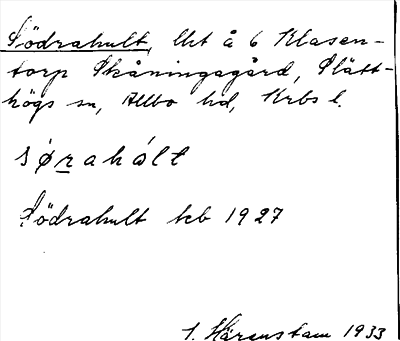 Södrahult, lht å 6 Klasen-
torp Skåningagård, Slätt-
högs sn, Allbo hd, Krbs l.
sǿrahólt
Södrahult kb 1927
1. Härenstam 1933